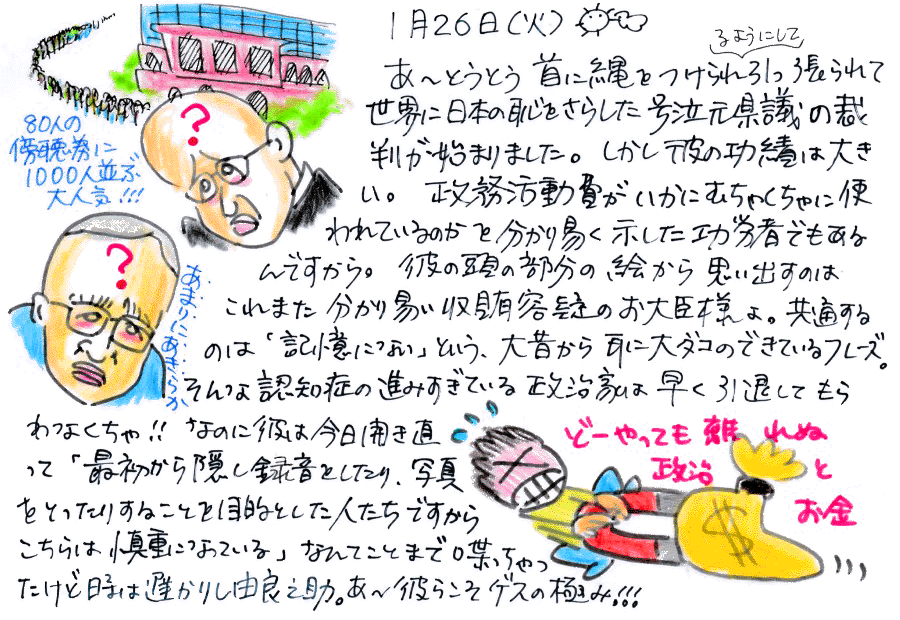 1月26日(火)
るようにして
あ〜とうとう 首に縄をつけられ引っ張られて
世界に日本の恥をさらした号泣元県議の裁
判が始まりました。しかし彼の功績は大き
い。政務活動費がいかにむちゃくちゃに使
われているのかを分かり易く示した功労者でもある
んですから。彼の頭の部分の絵から思い出すのは
これまた分かり易い収賄容疑のお大臣様よ。共通する
のは「記憶にない」という、大昔から耳に大ダコのできているフレーズ。
そんな認知症の進みすぎている政治家は早く引退してもら
わなくちゃ!! なのに彼は今日開き直
って「最初から隠し録音をしたり、写真
をとったりすることを目的とした人たちですから
こちらは慎重になっている」なんてことまで口葉っちゃっ
たけど時は遅かりし由良之助。あ〜彼らこそゲスの極み!!!
80人の
傍聴券に
1000人並ぶ
大人気!!!
?
?
あまりにあきらか
どーやっても離れぬ
政治と
お金
$